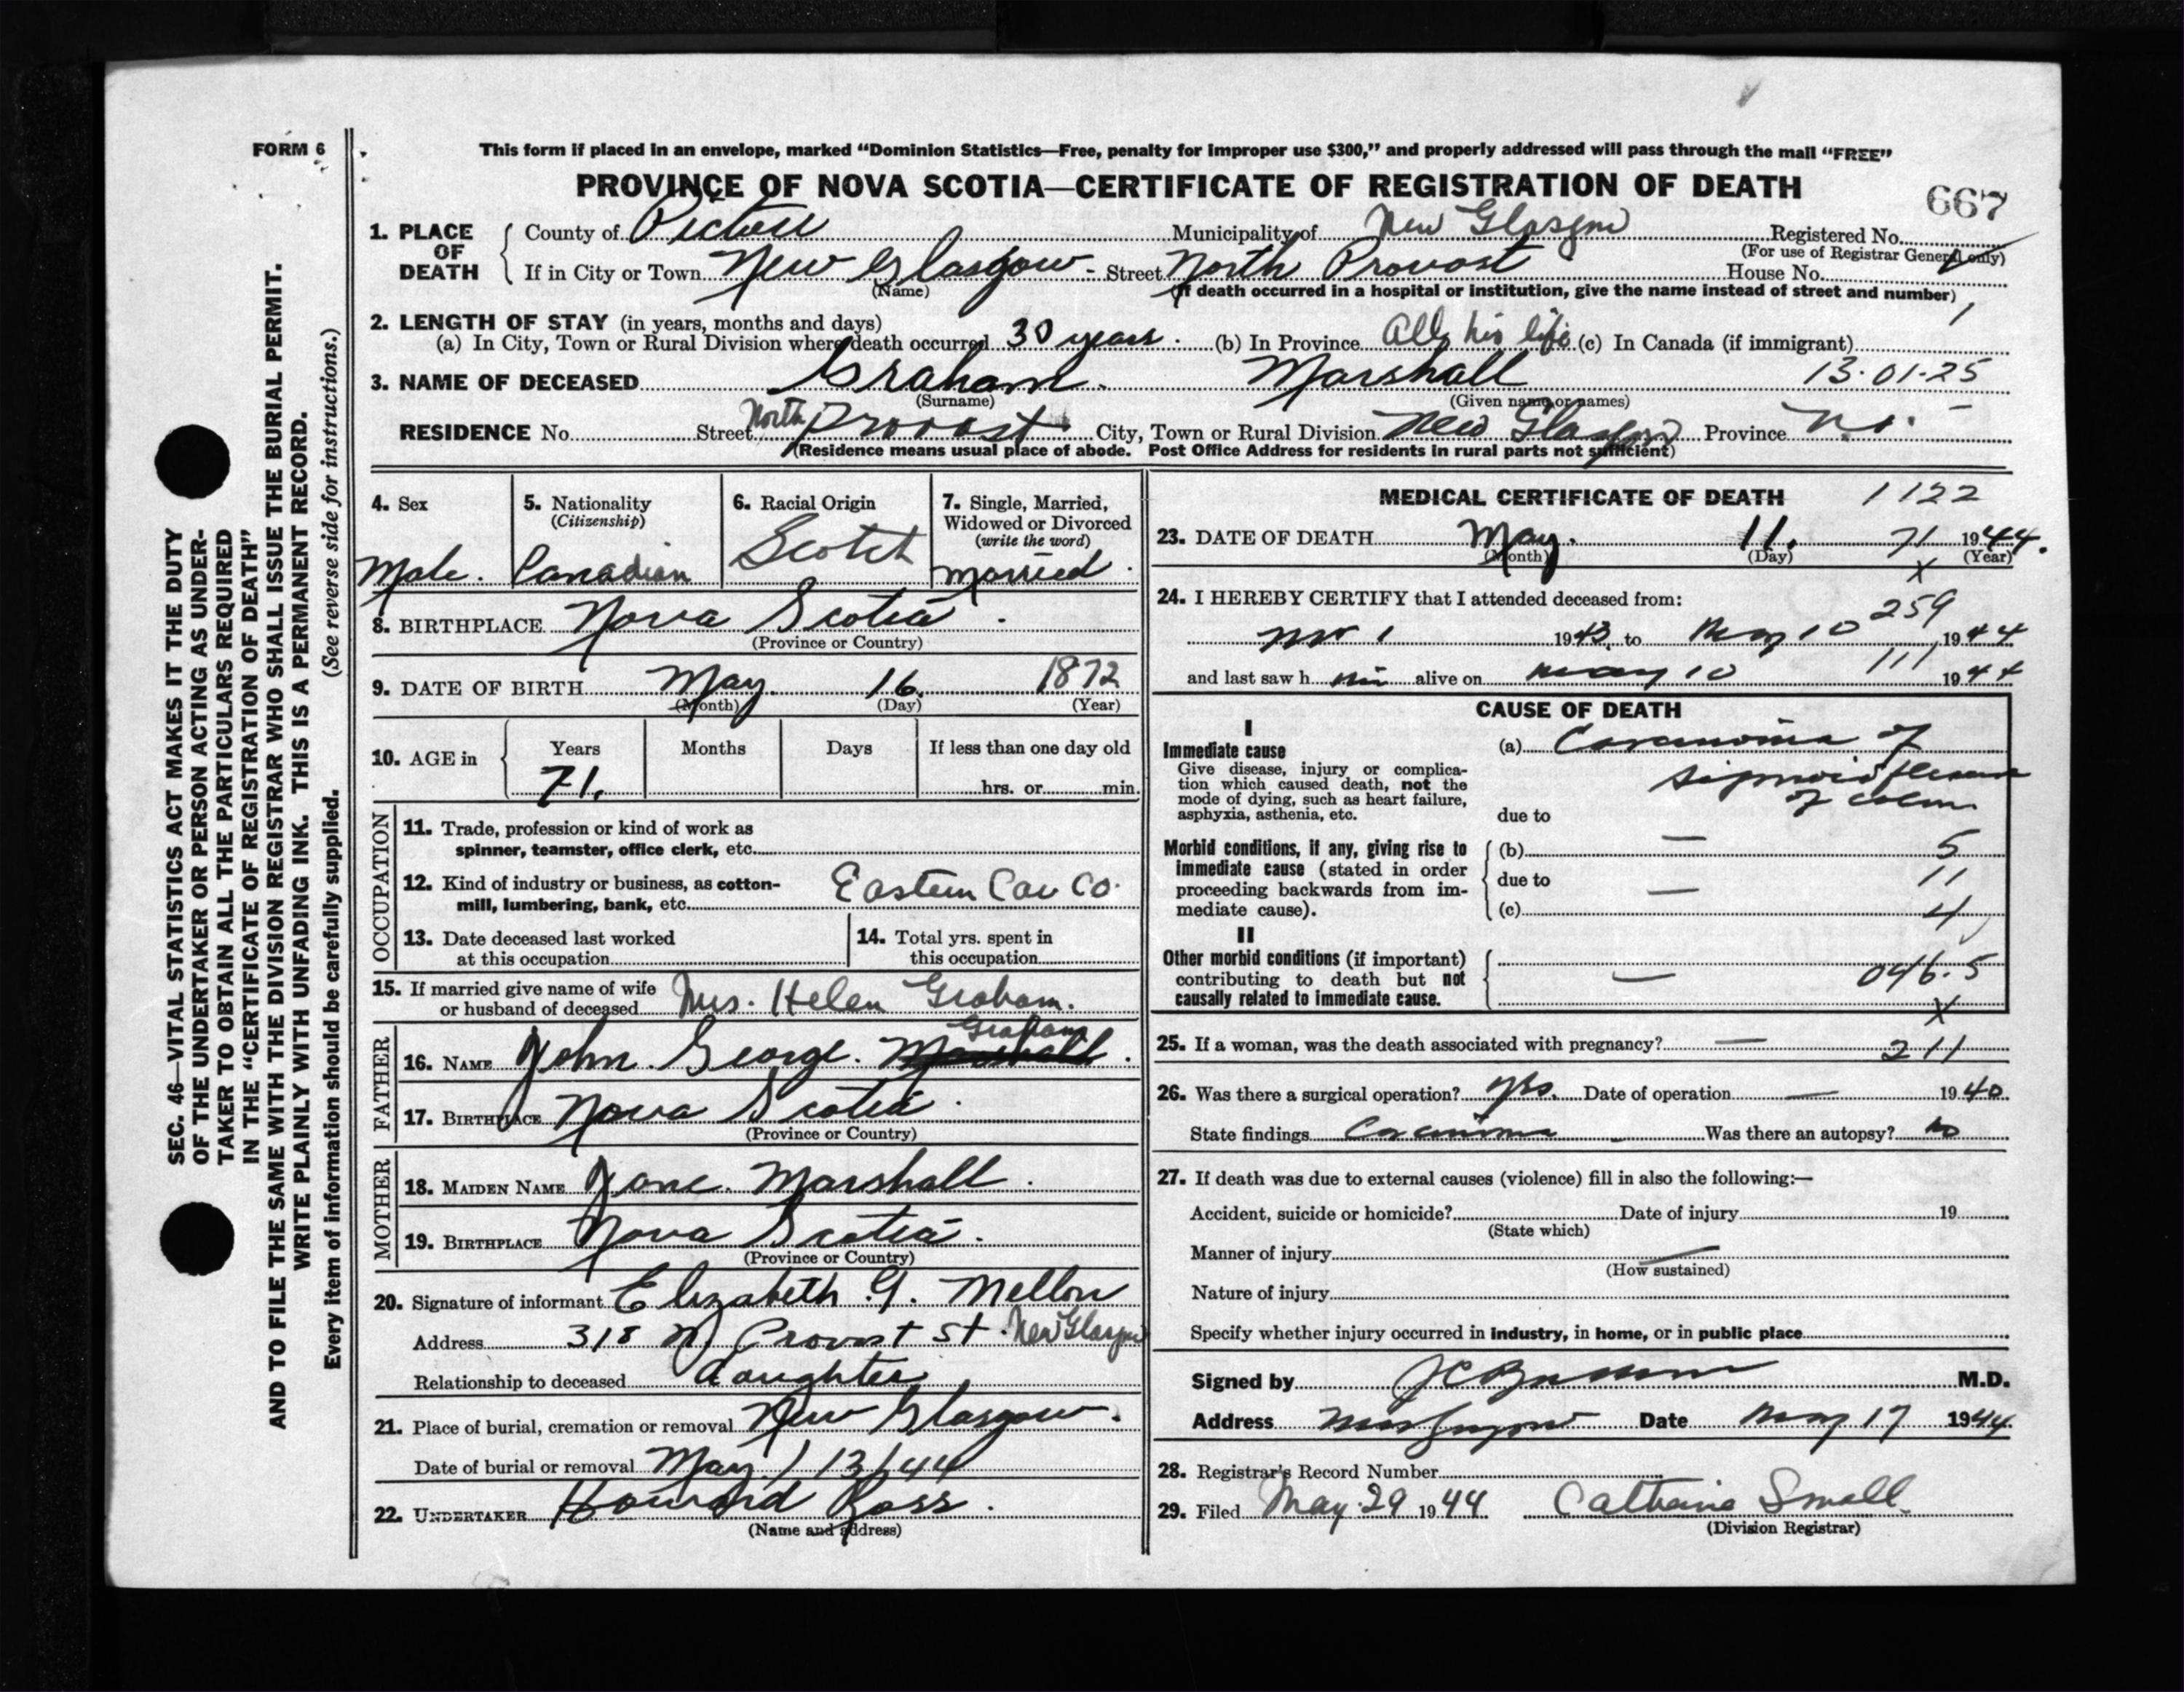 FORM 6
This form if placed in an envelope, marked “Dominion Statistics—Free, penalty for improper use $300,” and properly addressed will pass through the mail “FREE”
PROVINCE OF NOVA SCOTIA—CERTIFICATE OF REGISTRATION OF DEATH
667
1. PLACE OF DEATH
County of Pictou Municipality of New Glasgow Registered No.
(For use of Registrar General only)
If in City or Town New Glasgow - Street North Provost House No.
(Name) (If death occurred in a hospital or institution, give the name instead of street and number)
2. LENGTH OF STAY (in years, months and days)
(a) In City, Town or Rural Division where death occurred 30 years. (b) In Province All his life (c) In Canada (if immigrant)
3. NAME OF DECEASED Graham. Marshall 13·01·25
(Surname) (Given name or names)
RESIDENCE No. Street North Provost. City, Town or Rural Division New Glasgow Province N.S.
(Residence means usual place of abode. Post Office Address for residents in rural parts not sufficient)
4. Sex
Male.
5. Nationality
(Citizenship)
Canadian
6. Racial Origin
Scotch
7. Single, Married,
Widowed or Divorced
(write the word)
Married.
8. BIRTHPLACE Nova Scotia.
(Province or Country)
9. DATE OF BIRTH May. 16. 1872
(Month) (Day) (Year)
10. AGE in
Years Months Days If less than one day old
71. hrs. or min.
OCCUPATION
11. Trade, profession or kind of work as
spinner, teamster, office clerk, etc.
12. Kind of industry or business, as cotton-
mill, lumbering, bank, etc. Eastern Car Co.
13. Date deceased last worked
at this occupation
14. Total yrs. spent in
this occupation
15. If married give name of wife
or husband of deceased Mrs. Helen Graham.
FATHER
16. NAME John. George. Marshall Graham.
17. BIRTHPLACE Nova Scotia.
(Province or Country)
MOTHER
18. MAIDEN NAME Jane. Marshall.
19. BIRTHPLACE Nova Scotia.
(Province or Country)
20. Signature of informant Elizabeth G. Mellon
Address 318 N. Provost St. New Glasgow
Relationship to deceased daughter
21. Place of burial, cremation or removal New Glasgow.
Date of burial or removal May / 13/44
22. UNDERTAKER Howard Ross.
(Name and address)
MEDICAL CERTIFICATE OF DEATH 1122
23. DATE OF DEATH May. 11. 71 1944.
(Month) (Day) (Year)
X
24. I HEREBY CERTIFY that I attended deceased from:
259
Nov 1 1943 to May 10 1944
and last saw h im alive on May 10 111 1944
CAUSE OF DEATH
I
Immediate cause
Give disease, injury or complica-
tion which caused death, not the
mode of dying, such as heart failure,
asphyxia, asthenia, etc.
(a) Carcinoma of
sigmoid flexure
of colon
due to
Morbid conditions, if any, giving rise to
immediate cause (stated in order
proceeding backwards from im-
mediate cause).
(b) — 5
due to 11
(c) — 4
II
Other morbid conditions (if important)
contributing to death but not
causally related to immediate cause.
— 046.5
X
25. If a woman, was the death associated with pregnancy? — 211
26. Was there a surgical operation? yes. Date of operation — 1940
State findings Carcinoma Was there an autopsy? no
27. If death was due to external causes (violence) fill in also the following:—
Accident, suicide or homicide? Date of injury 19
(State which)
Manner of injury
(How sustained)
Nature of injury
Specify whether injury occurred in industry, in home, or in public place
Signed by M.D.
Address New Glasgow Date May 17 1944
28. Registrar's Record Number
29. Filed May 29 1944 Catherine Small
(Division Registrar)
SEC. 46—VITAL STATISTICS ACT MAKES IT THE DUTY
OF THE UNDERTAKER OR PERSON ACTING AS UNDER-
TAKER TO OBTAIN ALL THE PARTICULARS REQUIRED
IN THE “CERTIFICATE OF REGISTRATION OF DEATH”
AND TO FILE THE SAME WITH THE DIVISION REGISTRAR WHO SHALL ISSUE THE BURIAL PERMIT.
WRITE PLAINLY WITH UNFADING INK. THIS IS A PERMANENT RECORD.
Every item of information should be carefully supplied. (See reverse side for instructions.)